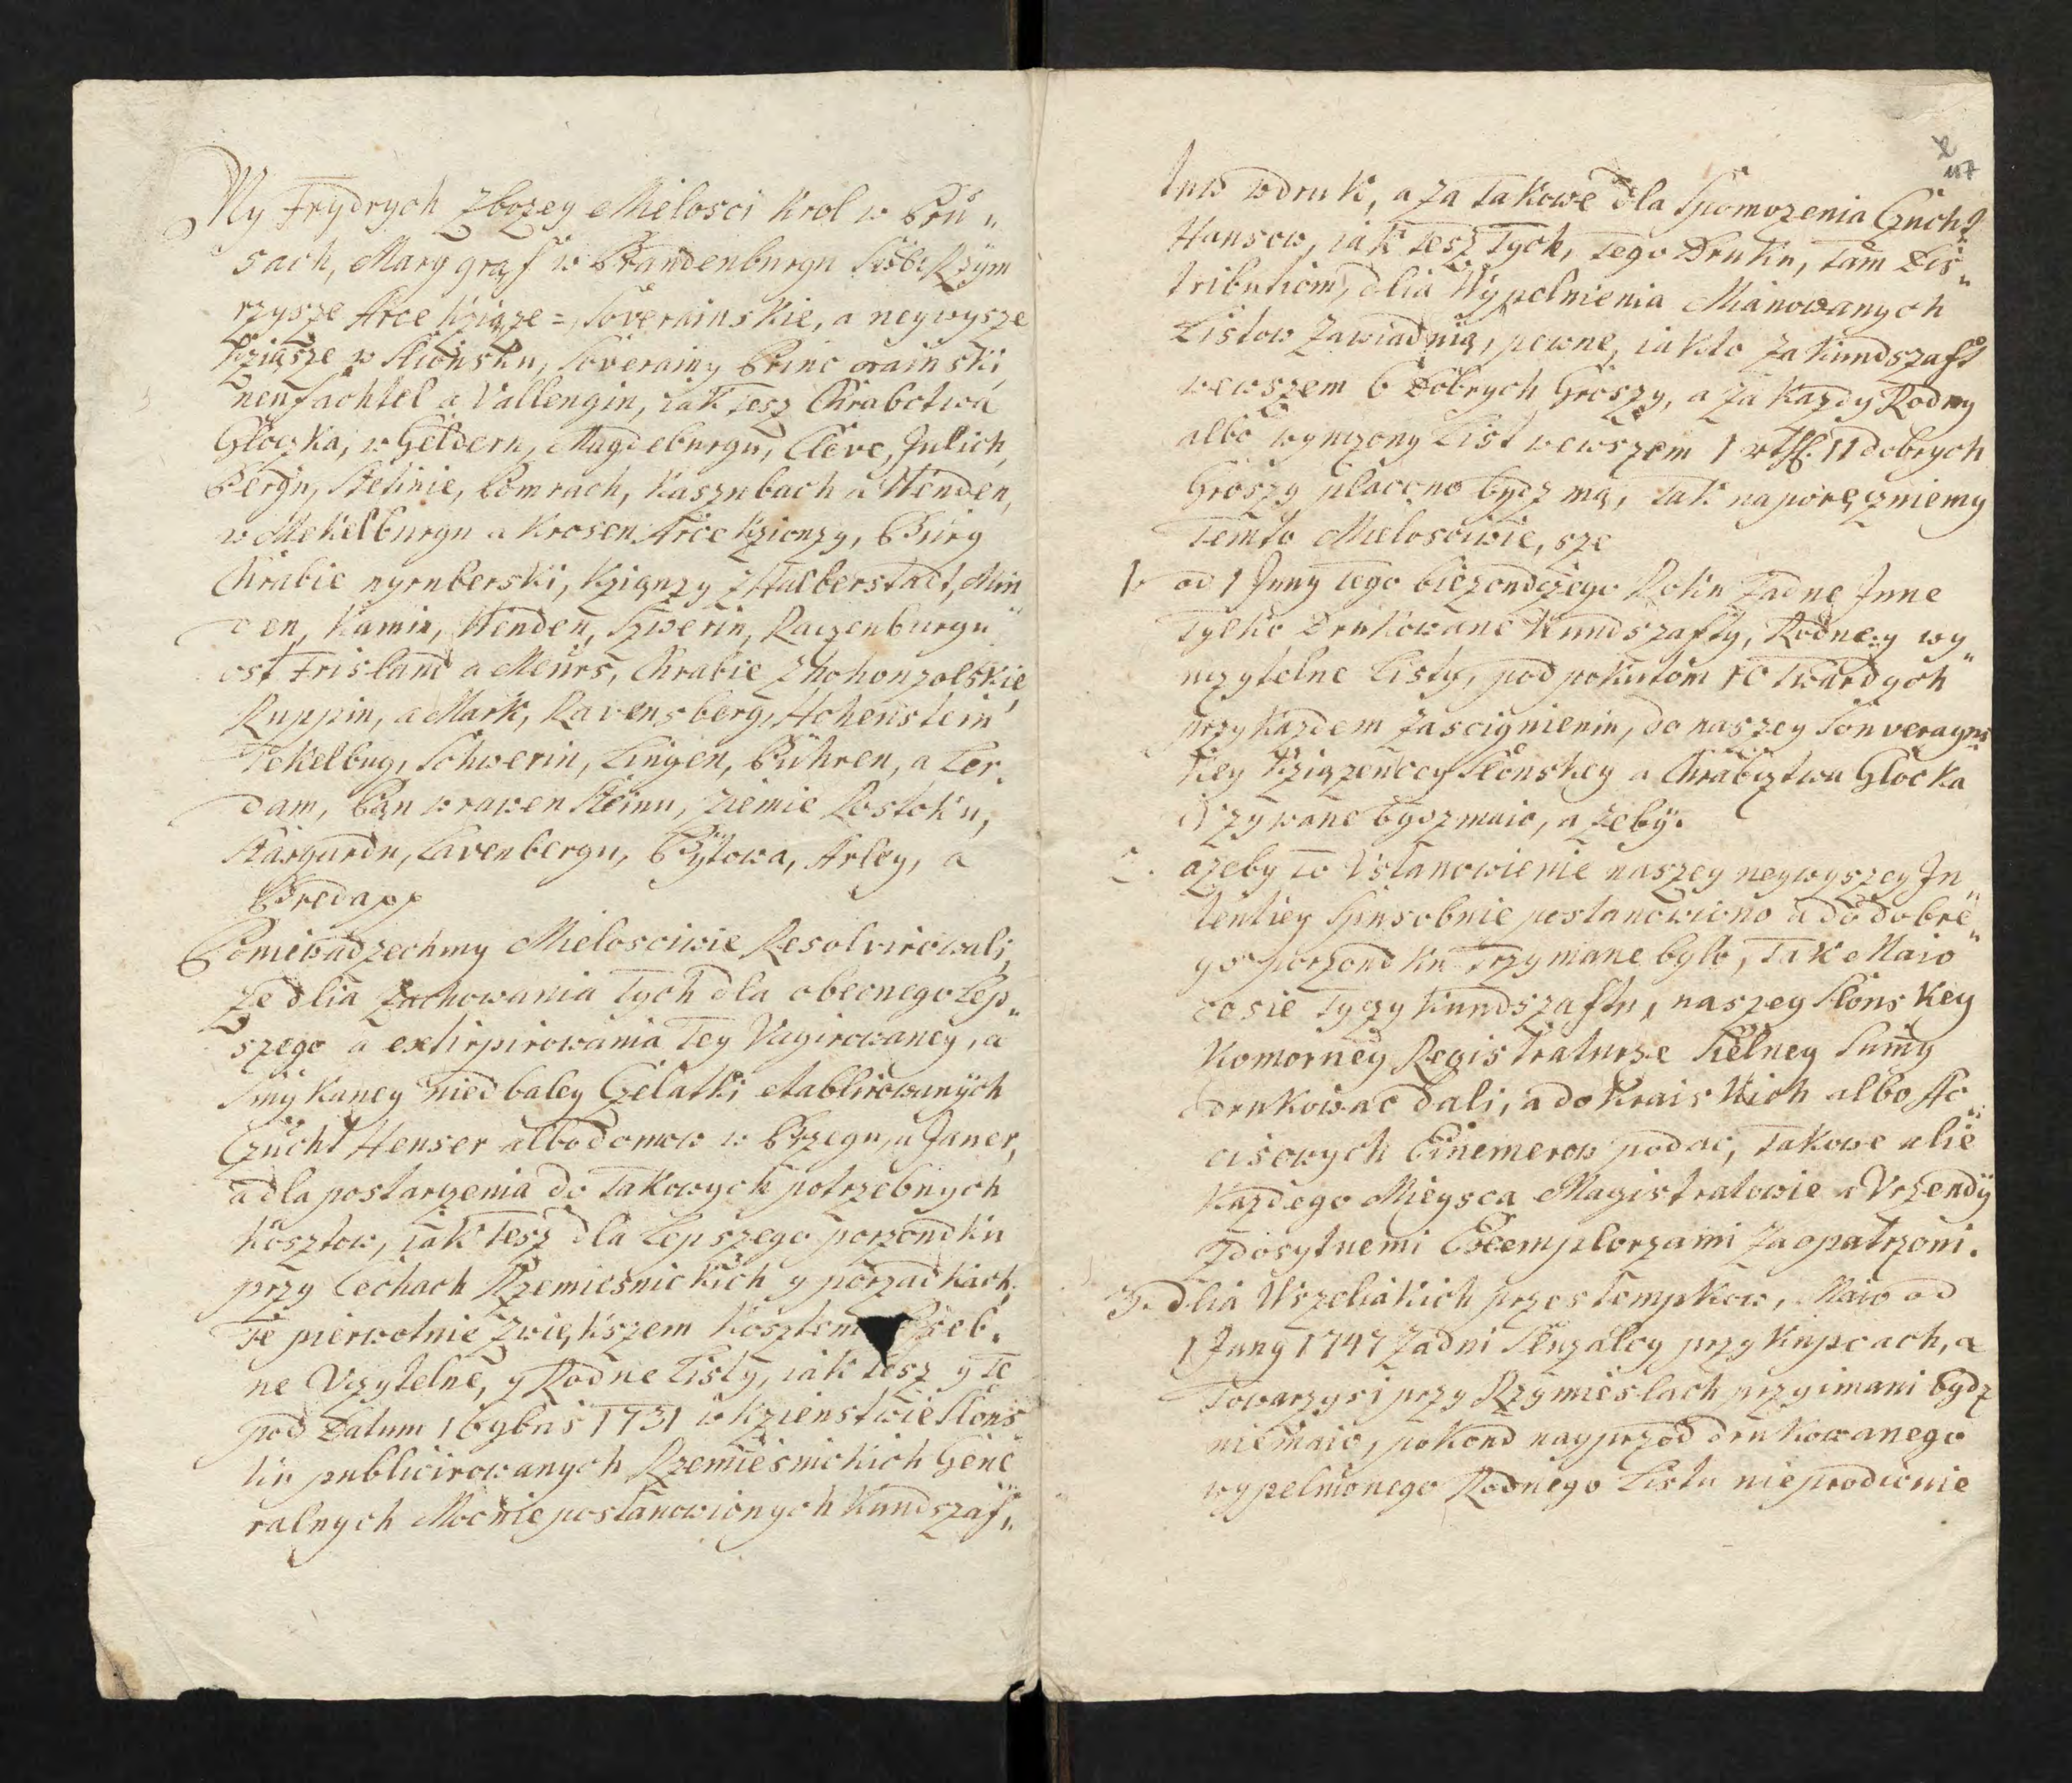 My Frydrych Zbozey Melosci Krol w Pru„
sach, Marggraf w Brandenburgu Swie Rzÿm
rzysze Arce Kziąze = Soverainskie, a neywysze
Kziąsze w Sliońsku, Soverainy Princ orainski,
neufachtel a Vallengin, iak tesz Chrabctwa
Glocka, w Geldern, Magdeburgu, Cleve, Julich,
Bergu, Stetinie, Pomrach, Kasznbach a Wenden,
w Mekelburgu a Krosen Arce Kzionzy, Burg
Chrabie nyrnberski, Kziąnzy z Halberstadt, Min
den, Kamin, Wenden, Szwerin, Raczenburgu
ost Frisland a Meurs, Chrabie z hohonzolskie,
Ruppin, a Mark, Ravensberg, Hohenstein
Tekelbug, Schwerin, Lingen, Bühren, a Ler„
dam, Pan w rawen Steinu, Ziemie Rostoku,
Stargurdu, Lavenbergu, Bÿtowa, Arley, a
Bredapp
Poniewadzechmy Melosciwie Resolvirowali,
ze dlia Zachowania tych dla obecnego lep„
szego a extirpirowania tey Vagirowaney, a
Smykaney niedbaley Czelatki etablirowanÿch
Czucht Henser albo domow w Brzegu, a Janer,
a dla postarzenia do takowych potrzebnych
Kosztow, iak tesz dla Lepszego porzondku
przy Cechach Rzemiesnickich y porzadkach,
te pierwotnie zwięKszem Kosztem
ne Vczytelne, y Rodne Listy, iak tesz y te
pod Datum 16 9bris 1731 w Kzienstwie Slons
ku publicirowanych Rzemiesnickich Gene
ralnych Mocnie postanowionych Kundszaf„
117
tuw w druk, a za takowe dla Spomozenia Czucht„
Hansow, iak tesz tych, tego Druku, tam Dis„
tributiom, dlia Wypolnienia Mianowanych
Listow Zawiadnią, pewne, iakto za Kundszaft
wewszem 6 Dobrych Groszy, a za Kazdy Rodny
albo wyuczony List wewszem 1 rthl. 11 dobrych
Groszy placono bydz mą, tak naporęczniemy
temto Melosciwie, sze
1. od 1 Juny tego biezondczego Roku Zadne Jnne
tylko Drukowane Kundszafty, Rodne y wy„
uczytelne Listy, pod pokutom 10 twardych
przy Kazdem Zascignieniu, do naszey Souverayns
Key Kziązenccy Slonskey a Chrabztwa Glocka
Vzywane bydz maio, a zebÿ.
2. azeby to Vstanowienie naszey neywyszey Jn„
tentiey Spusobnie postanowiono a do dobre„
go porzondku trzymane bylo, tak Maio
co sie tyczy Kundszaftu, naszey Slonskey
Komorney Registraturze Sielney Sumy
drukowac dali, a do Kraiskich albo Ac„
cisowych Einemerow podac, takowe alie
Kazdego Mieysca Magistratowie a Vrzendÿ
zdosytnemi Excemplorzami Zaopatrzoni.
3. dlia Wszeliakich przestempkow, Maio od
1 Juny 1747 Zadni Sluzalcy przy Kupcach, a
towarzysi przy Rzymieslach przyimani bydz
niemaio, pokond nayprzod drukowanego
wypelnionego Rodnego Listu nieprodicnie